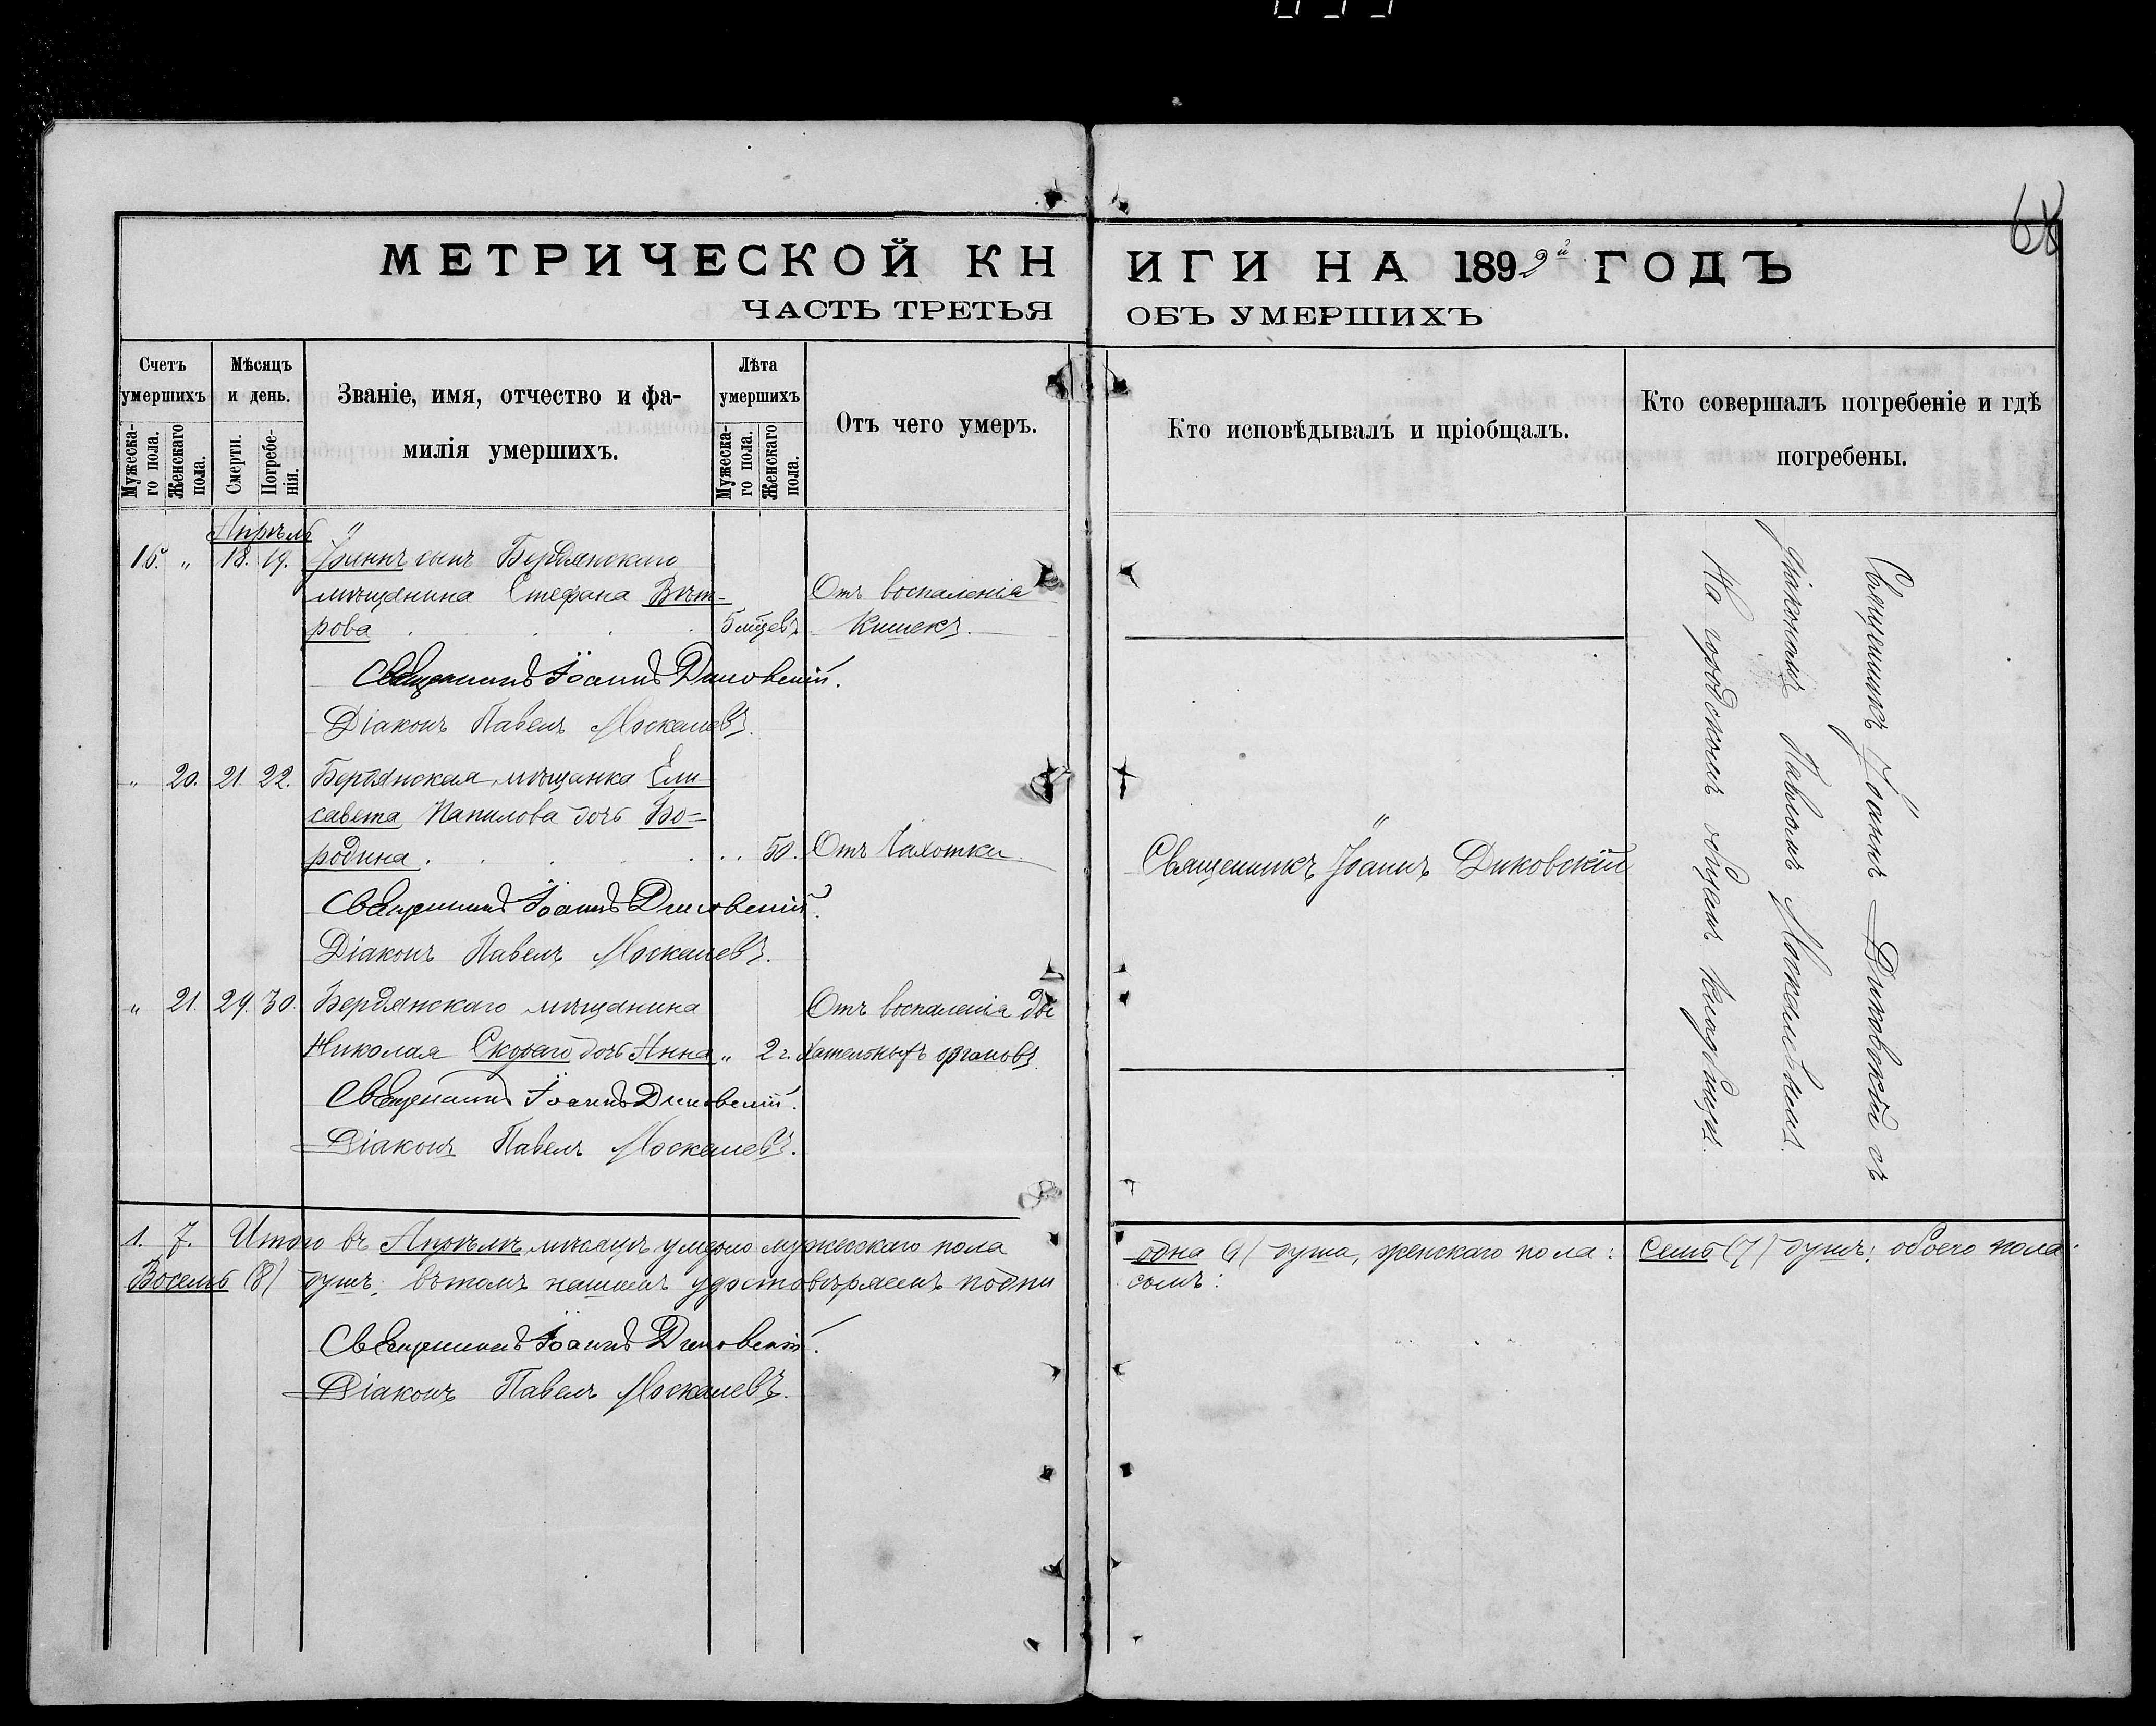 68
МЕТРИЧЕСКОЙ КНИГИ НА 1899й ГОДЪ
ЧАСТЬ ТРЕТЬЯ ОБЪ УМЕРШИХЪ
Счетъ умершихъ
Мужеска-го пола.
Женскаго пола.
Мѣсяцъ и день.
Смерти.
Погребе-нія.
Званіе, имя, отчество и фа-
милія умершихъ.
Лѣта умершихъ
Мужеска-го пола.
Женскаго пола.
Отъ чего умеръ.
Кто исповѣдывалъ и пріобщалъ.
Кто совершалъ погребеніе и гдѣ
погребены.
Апрѣль
15. „ 18. 19. Іоаннъ сынъ Бердянскаго
мѣщанина Стефана Вѣт- Отъ воспаленія
рова 5 мѣсцевъ Кишекъ.
Священникъ Іоаннъ Диковскій.
Діаконъ Павелъ Москалевъ.
„ 20. 21. 22. Бердянская мѣщанка Ели-
савета дочь Бо=
родина 50. Отъ Чахотки
Священникъ Іоаннъ Диковскій
Священникъ Іоаннъ Диковскій.
Діаконъ Павелъ Москалевъ.
„ 21. 29. 30. Бердянскаго мѣщанина Отъ воспаленія ды
Николая Скораго дочь Анна „ 2 г. хательныхъ органовъ.
Священникъ Іоаннъ Диковскій.
Діаконъ Павелъ Москалевъ.
Священникъ Іоаннъ Диковскій съ
Діакономъ Павломъ Москалевымъ.
На городскомъ общемъ кладбищѣ.
1. 7. Итого въ Апрѣлѣ мѣсяцѣ умерло мужескаго пола одна (1) душа, женскаго пола: Семь (7) душъ; обоего пола:
Восемь (8) душъ; въ томъ нашимъ удостовѣряемъ подпи сомъ:
Священникъ Іоаннъ Диковскій.
Діаконъ Павелъ Москалевъ.